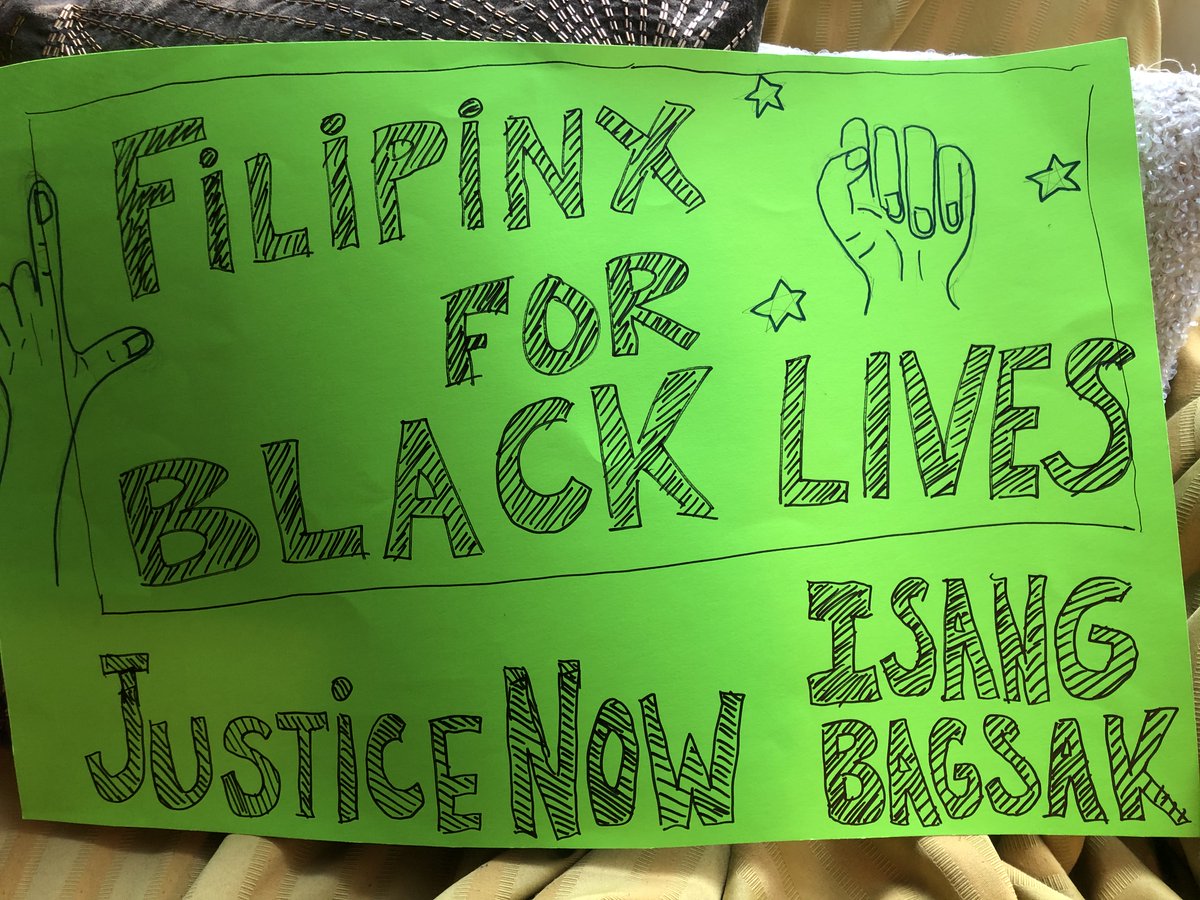 FiLiPiNX
FOR
BLACK LIVES
JUSTiCE NOW
ISANG
BAGSAK